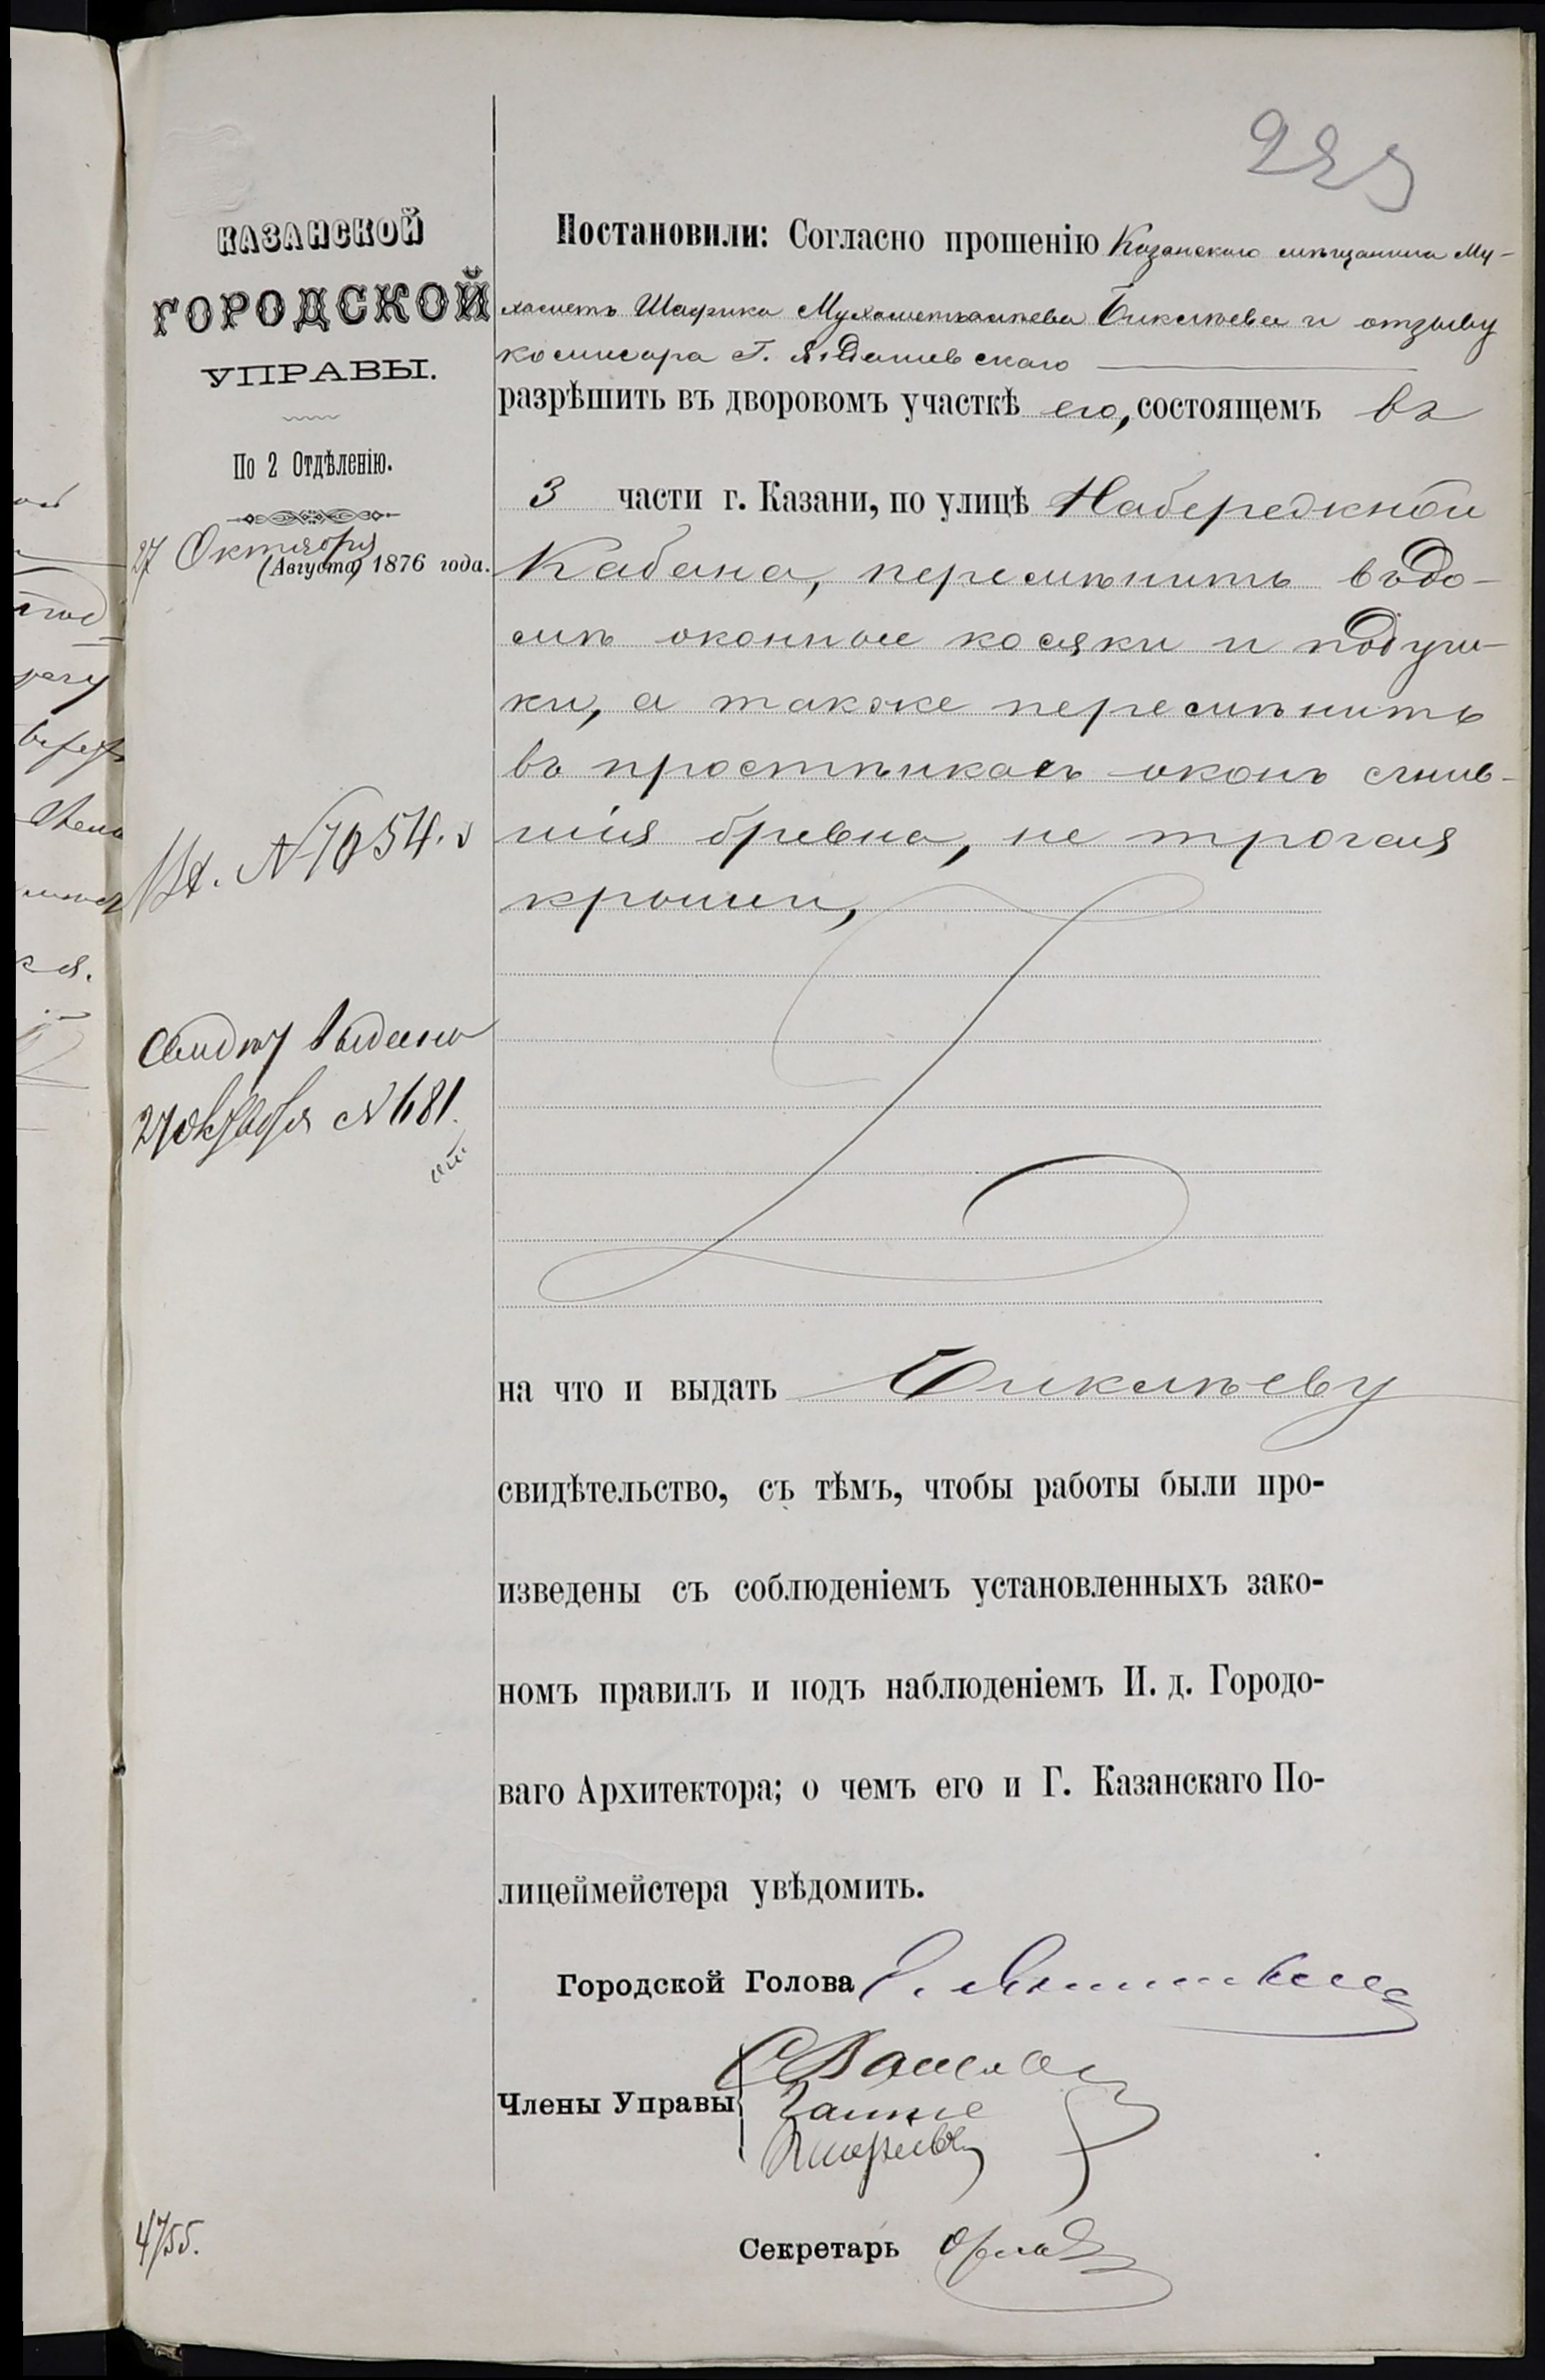 223
КАЗАНСКОЙ
ГОРОДСКОЙ
УПРАВЫ.
По 2 Отдѣленію.
27 Октября
(Августа) 1876 года.
№ 7054.
выдано
27 октября № 681.
4755.
Постановили: Согласно прошенію Казанскаго мѣщанина Му-
хаметъ Шафика Бикмѣева и отзыву
комисара Г.
разрѣшить въ дворовомъ участкѣ его, состоящемъ въ
3 части г. Казани, по улицѣ Набережной
Кабана, перемѣнить въ до-
мѣ оконные косяки и подуш-
ки, а также перемѣнить
въ простѣнкахъ оконъ сгнив-
шія бревна, не трогая
крыши,
на что и выдать Бикмѣеву
свидѣтельство, съ тѣмъ, чтобы работы были про-
изведены съ соблюденіемъ установленныхъ зако-
номъ правилъ и подъ наблюденіемъ И. д. Городо-
ваго Архитектора; о чемъ его и Г. Казанскаго По-
лицеймейстера увѣдомить.
Городской Голова
Члены Управы
Секретарь